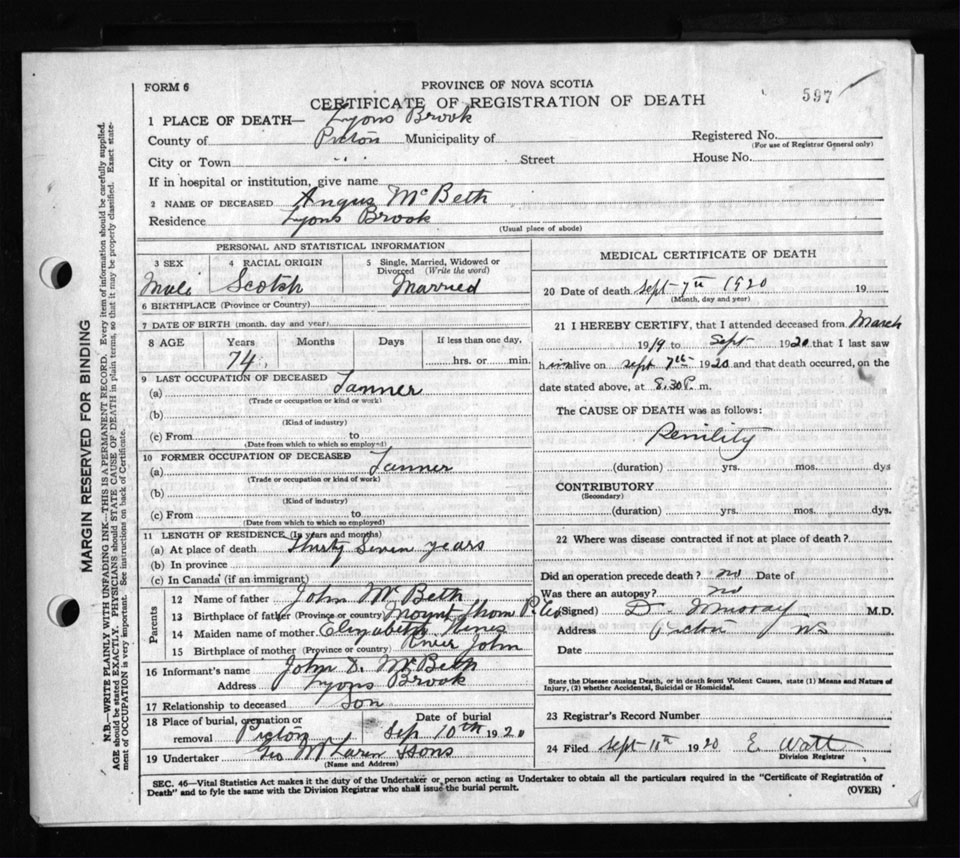 FORM 6
PROVINCE OF NOVA SCOTIA
597
CERTIFICATE OF REGISTRATION OF DEATH
1 PLACE OF DEATH— Lyons Brook
County of Pictou Municipality of
Registered No.
(For use of Registrar General only)
City or Town " Street House No.
If in hospital or institution, give name
2 NAME OF DECEASED Angus McBeth
Residence Lyons Brook
(Usual place of abode)
PERSONAL AND STATISTICAL INFORMATION
3 SEX
Male
4 RACIAL ORIGIN
Scotch
5 Single, Married, Widowed or Divorced (Write the word)
Married
6 BIRTHPLACE (Province or Country)
7 DATE OF BIRTH (month, day and year)
8 AGE Years Months Days If less than one day,
74 hrs. or min.
9 LAST OCCUPATION OF DECEASED
(a) Tanner
(Trade or occupation or kind or work)
(b)
(Kind of industry)
(c) From to
(Date from which to which so employed)
10 FORMER OCCUPATION OF DECEASED
(a) Tanner
(Trade or occupation or kind of work)
(b)
(Kind of industry)
(c) From to
(Date from which to which so employed)
11 LENGTH OF RESIDENCE (In years and months)
(a) At place of death Thirty Seven years
(b) In province
(c) In Canada (if an immigrant)
Parents
12 Name of father John McBeth
13 Birthplace of father (Province or country) Mount Thom
14 Maiden name of mother Elizabeth
15 Birthplace of mother (Province or country) River John
16 Informant's name John D. McBeth
Address Lyons Brook
17 Relationship to deceased Son
18 Place of burial, cremation or removal Pictou
Date of burial
Sep 10th 1920
19 Undertaker Geo McLaren & Sons
(Name and Address)
MEDICAL CERTIFICATE OF DEATH
20 Date of death Sept 7th 1920 19
(Month, day and year)
21 I HEREBY CERTIFY, that I attended deceased from March
1919 to Sept 1920 that I last saw
him alive on Sept 7th 1920 and that death occurred, on the
date stated above, at 8.30 P. m.
The CAUSE OF DEATH was as follows:
Senility
(duration) yrs. mos. dys
CONTRIBUTORY
(Secondary)
(duration) yrs. mos. dys.
22 Where was disease contracted if not at place of death?
Did an operation precede death? no Date of
Was there an autopsy? no
(Signed) D. Murray M.D.
Address Pictou NS
Date
State the Disease causing Death, or in death from Violent Causes, state (1) Means and Nature of
Injury, (2) whether Accidental, Suicidal or Homicidal.
23 Registrar's Record Number
24 Filed Sept 1920 E. Watt
Division Registrar
SEC. 46—Vital Statistics Act makes it the duty of the Undertaker or person acting as Undertaker to obtain all the particulars required in the "Certificate of Registration of
Death" and to fyle the same with the Division Registrar who shall issue the burial permit.
(OVER)
MARGIN RESERVED FOR BINDING
N.B.—WRITE PLAINLY WITH UNFADING INK—THIS IS A PERMANENT RECORD. Every item of information should be carefully supplied.
AGE should be stated EXACTLY. PHYSICIANS should STATE CAUSE OF DEATH in plain terms, so that it may be properly classified. Exact statement of OCCUPATION is very important. See instructions on back of Certificate.